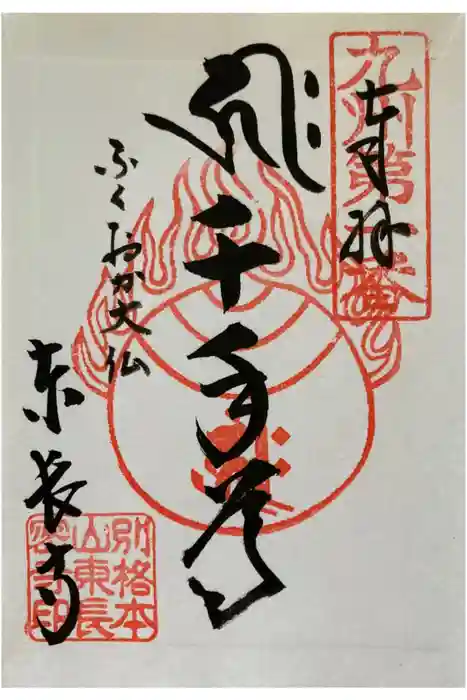 九州第一番
奉拝
ह्रीः千手尊
ふくおか大仏
東長寺
別格本
山東長
密寺印